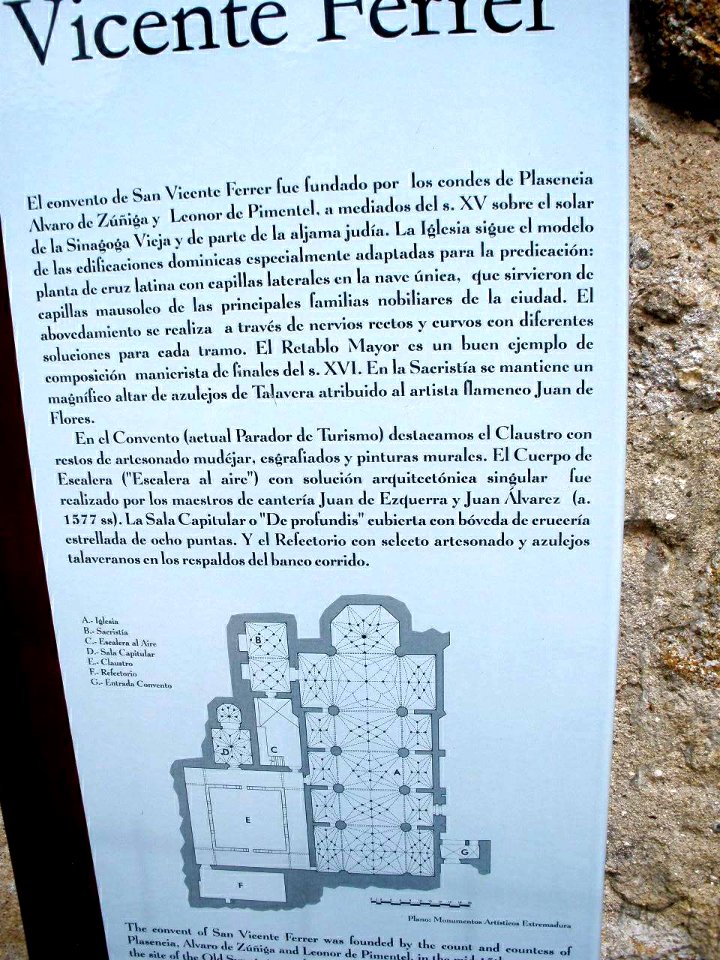 Vicente Ferrer
El convento de San Vicente Ferrer fue fundado por los condes de Plasencia
Alvaro de Zúñiga y Leonor de Pimentel, a mediados del s. XV sobre el solar
de la Sinagoga Vieja y de parte de la aljama judía. La Iglesia sigue el modelo
de las edificaciones dominicas especialmente adaptadas para la predicación:
planta de cruz latina con capillas laterales en la nave única, que sirvieron de
capillas mausoleo de las principales familias nobiliares de la ciudad. El
abovedamiento se realiza a través de nervios rectos y curvos con diferentes
soluciones para cada tramo. El Retablo Mayor es un buen ejemplo de
composición manierista de finales del s. XVI. En la Sacristía se mantiene un
magnífico altar de azulejos de Talavera atribuido al artista flamenco Juan de
Flores.
En el Convento (actual Parador de Turismo) destacamos el Claustro con
restos de artesonado mudéjar, esgrafiados y pinturas murales. El Cuerpo de
Escalera ("Escalera al aire") con solución arquitectónica singular fue
realizado por los maestros de cantería Juan de Ezquerra y Juan Álvarez (a.
1577 ss). La Sala Capitular o "De profundis" cubierta con bóveda de crucería
estrellada de ocho puntas. Y el Refectorio con selecto artesonado y azulejos
talaveranos en los respaldos del banco corrido.
A.- Iglesia
B.- Sacristía
C.- Escalera al Aire
D.- Sala Capitular
E.- Claustro
F.- Refectorio
G.- Entrada Convento
B
D
C
A
E
G
F
Plano: Monumentos Artísticos Extremadura
The convent of San Vicente Ferrer was founded by the count and countess of
Plasencia, Alvaro de Zúñiga and Leonor de Pimentel, in the mid
the site of the Old